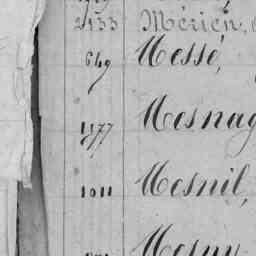 2133 Mérien,
649 Messé,
1577 Mesnag
1011 Mesnil,
Mesny